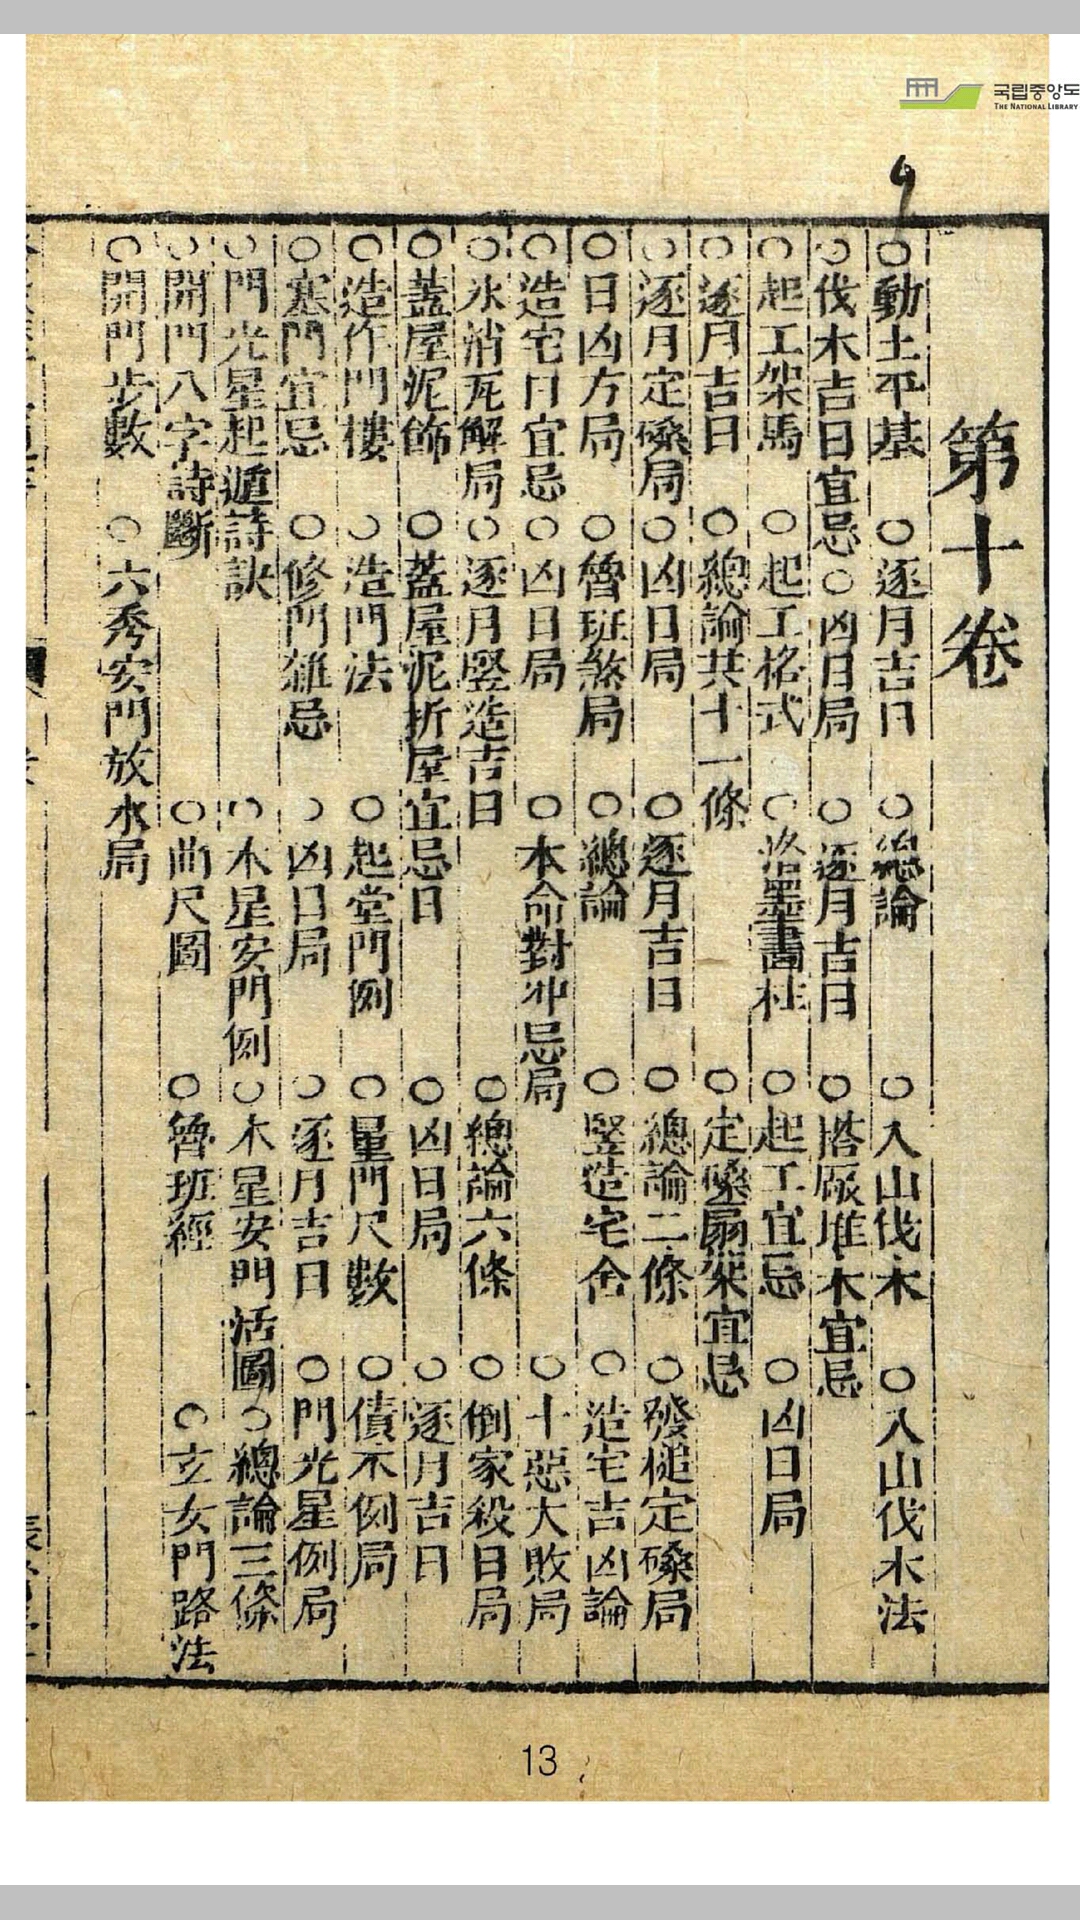 국립중앙도
THE NATIONAL LIBRARY
第十卷
○動土平基○逐月吉日○總論○入山伐木○入山伐木法
○伐木吉日宜忌○凶日局○逐月吉日○塔厫堆木宜忌
○起工架馬○起工格式○洛墨畵柱○起工宜忌○凶日局
○逐月吉日○總論共十一條○定磉扇架宜忌
○逐月定磉局○凶日局○逐月吉日○總論二條○發槌定磉局
○日凶方局○魯班煞局○總論○竪造宅舍○造宅吉凶論
○造宅日宜忌○凶日局○本命對冲忌局○十惡大敗局
○氷消瓦解局○逐月竪造吉日○總論六條○倒家殺日局
○蓋屋泥飾○蓋屋泥折屋宜忌日○凶日局○逐月吉日
○造作門樓○造門法○起堂門例○量門尺數○債不例局
○塞門宜忌○修門雜忌○凶日局○逐月吉日○門光星例局
○門光星起遁詩訣○木星安門例○木星安門活圖○總論三條
○開門八字詩斷○曲尺圖○魯班經○玄女門路法
○開門步數○六秀安門放水局
13